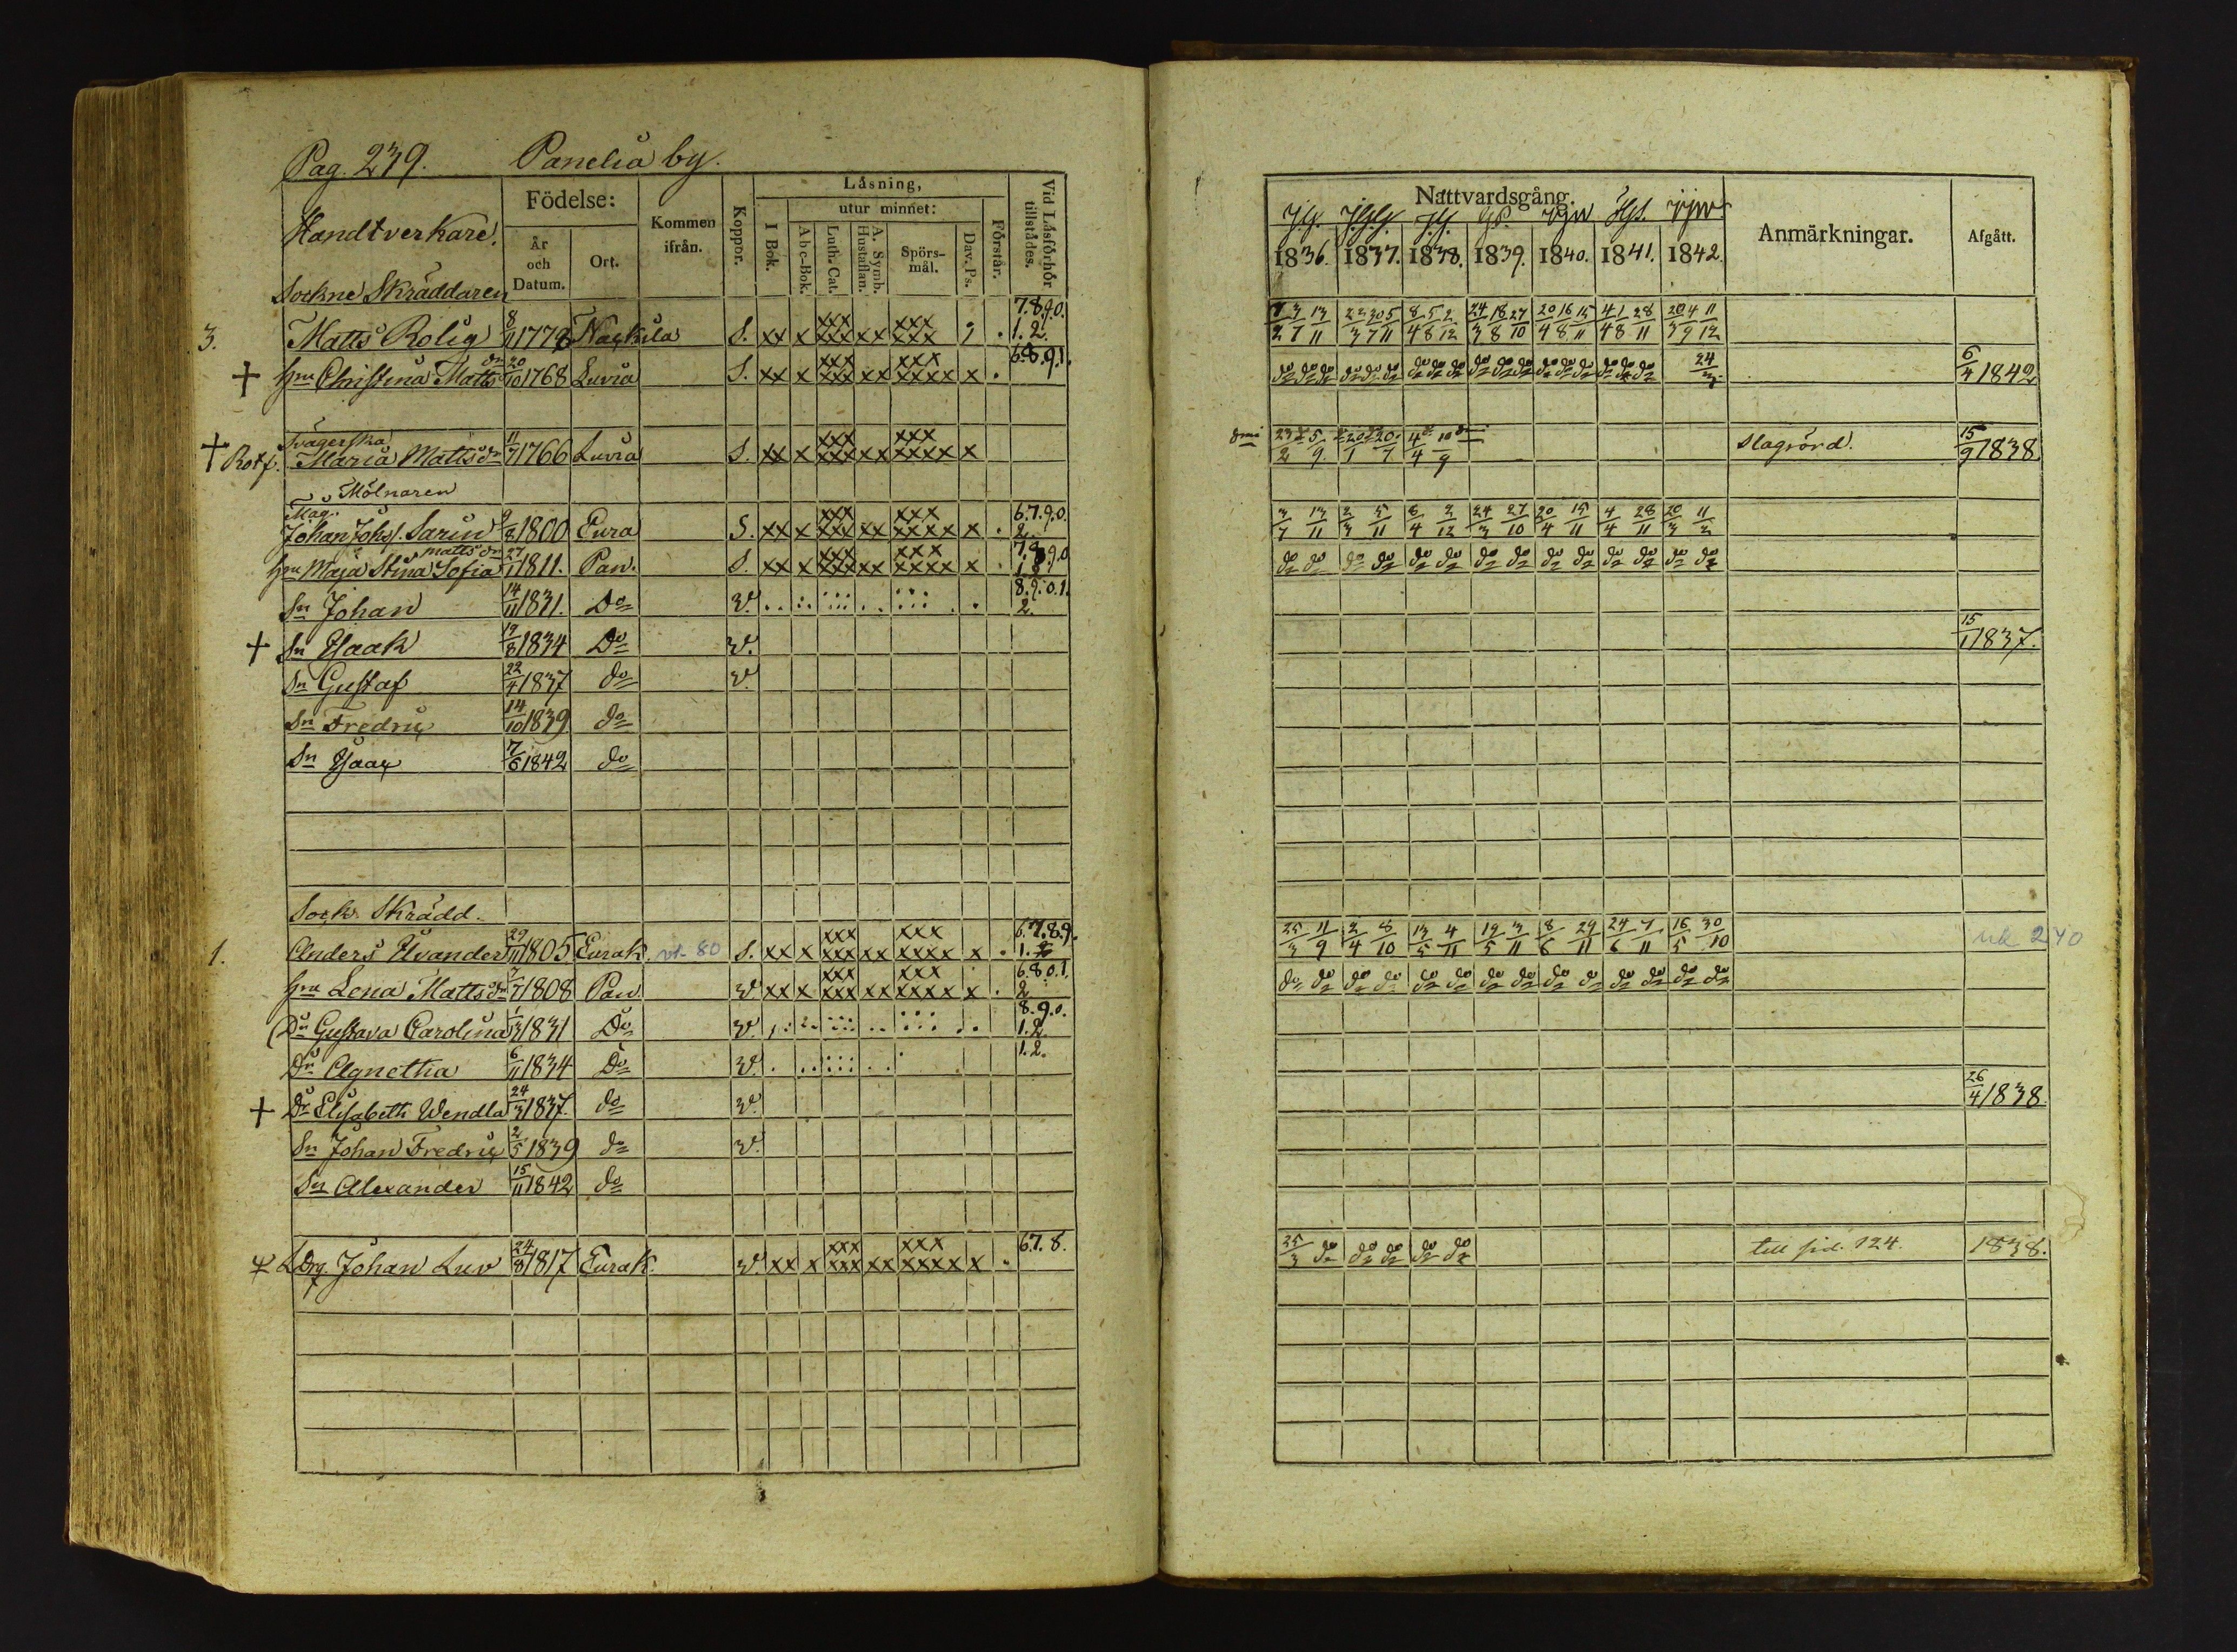 Pag. 239. Panelia by.
Handtverkare.
Födelse:
År och Datum.
Ort.
Kommen ifrån.
Koppor.
Läsning,
I Bok.
utur minnet:
Abc-Bok.
Luth. Cat.
A. Symb. Hustaflan.
Spörs-mål.
Dav. Ps.
Förstår.
Vid Läsförhör tillstädes.
Sockne Skräddaren
3. Matts Rolig 8/11 1779 Nackila S. xx x xxx xxx xx xxx xxx . 7.8.9.0. 1.2.
† Hru Christina Matts dr 20/10 1768 Luvia S. xx x xxx xxx xx xxx xxxx x . 6.8.9.1.
Svägerska
† Rotf. Maria Matts dr 11/7 1766 Luvia S. xx x xxx xxx xx xxx xxxx x
Mölnaren
Måg.
Johan Johs. Sarin 9/8 1800 Eura S. xx x xxx xxx xx xxx xxxx x . 6.7.9.0. 2.
Matts dr
Hru Maja Stina Sofia 27/1 1811. Pan. S. xx x xxx xxx xx xxx xxxx x .
Sn Johan 14/11 1831. Do v. 8.9.0.1. 2.
† Sn Isaak 19/8 1834 Do v.
Sn Gustaf 22/4 1837 do v.
Sn Fredric 14/10 1839 do
Sn Isaac 7/6 1842 do
Sock. Skrädd.
1. Anders Evander 29/11 1805 Eurak. vt. 80 S. xx x xxx xxx xx xxx xxxx x . 6.7.8.9. 1.
Hru Lena Matts dr 7/7 1808 Pan v xx x xxx xxx xx xxx xxxx x . 6.8.0.1. 2
Dr Gustava Carolina 1/3 1831 Do v. 8.9.0. 1.2.
Dr Agnetha 6/11 1834 Do v. 1.2.
† Dr Elisabeth Wendla 24/3 1837. do v.
Sn Johan Fredric 2/5 1839 do v.
Sn Alexander 15/11 1842 do
Ldrg. Johan Luv 24/8 1817 Eurak. v. xx x xxx xxx xx xxx xxxx x . 6.7.8.
Nattvardsgång.
1836. 1837. 1838. 1839. 1840. 1841. 1842.
Anmärkningar.
Afgått.
24/3 18/8 27/10 20/4 16/8 15/11 4/4 1/8 28/11 20/3 4/9 11/12
do do do do do do do do do do do do do do do do do do 24/3 6/4 1842
slagrörd. 15/9 1838.
3/7 13/11 2/3 5/11 8/4 2/12 24/3 27/10 20/4 15/11 4/4 28/11 20/3 11/2
do do do do do do do do do do do do do do
15/1 1837.
25/3 11/9 2/4 8/10 13/5 4/11 19/5 3/11 8/6 29/11 24/6 7/11 16/5 30/10 uk 240
do do do do do do do do do do do do do do
26/4 1838.
25/3 do do do do do till sid. 124. 1838.